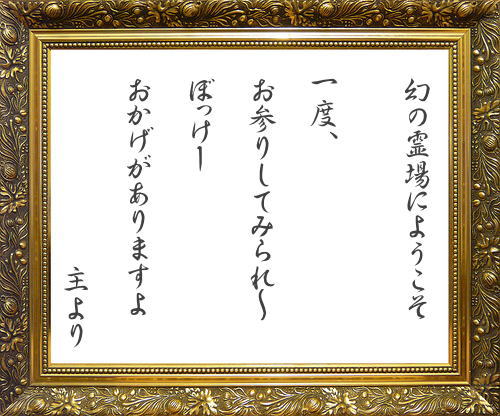 幻の霊場にようこそ
一度、
お参りしてみられ〜
ぼっけー
おかげがありますよ
主より